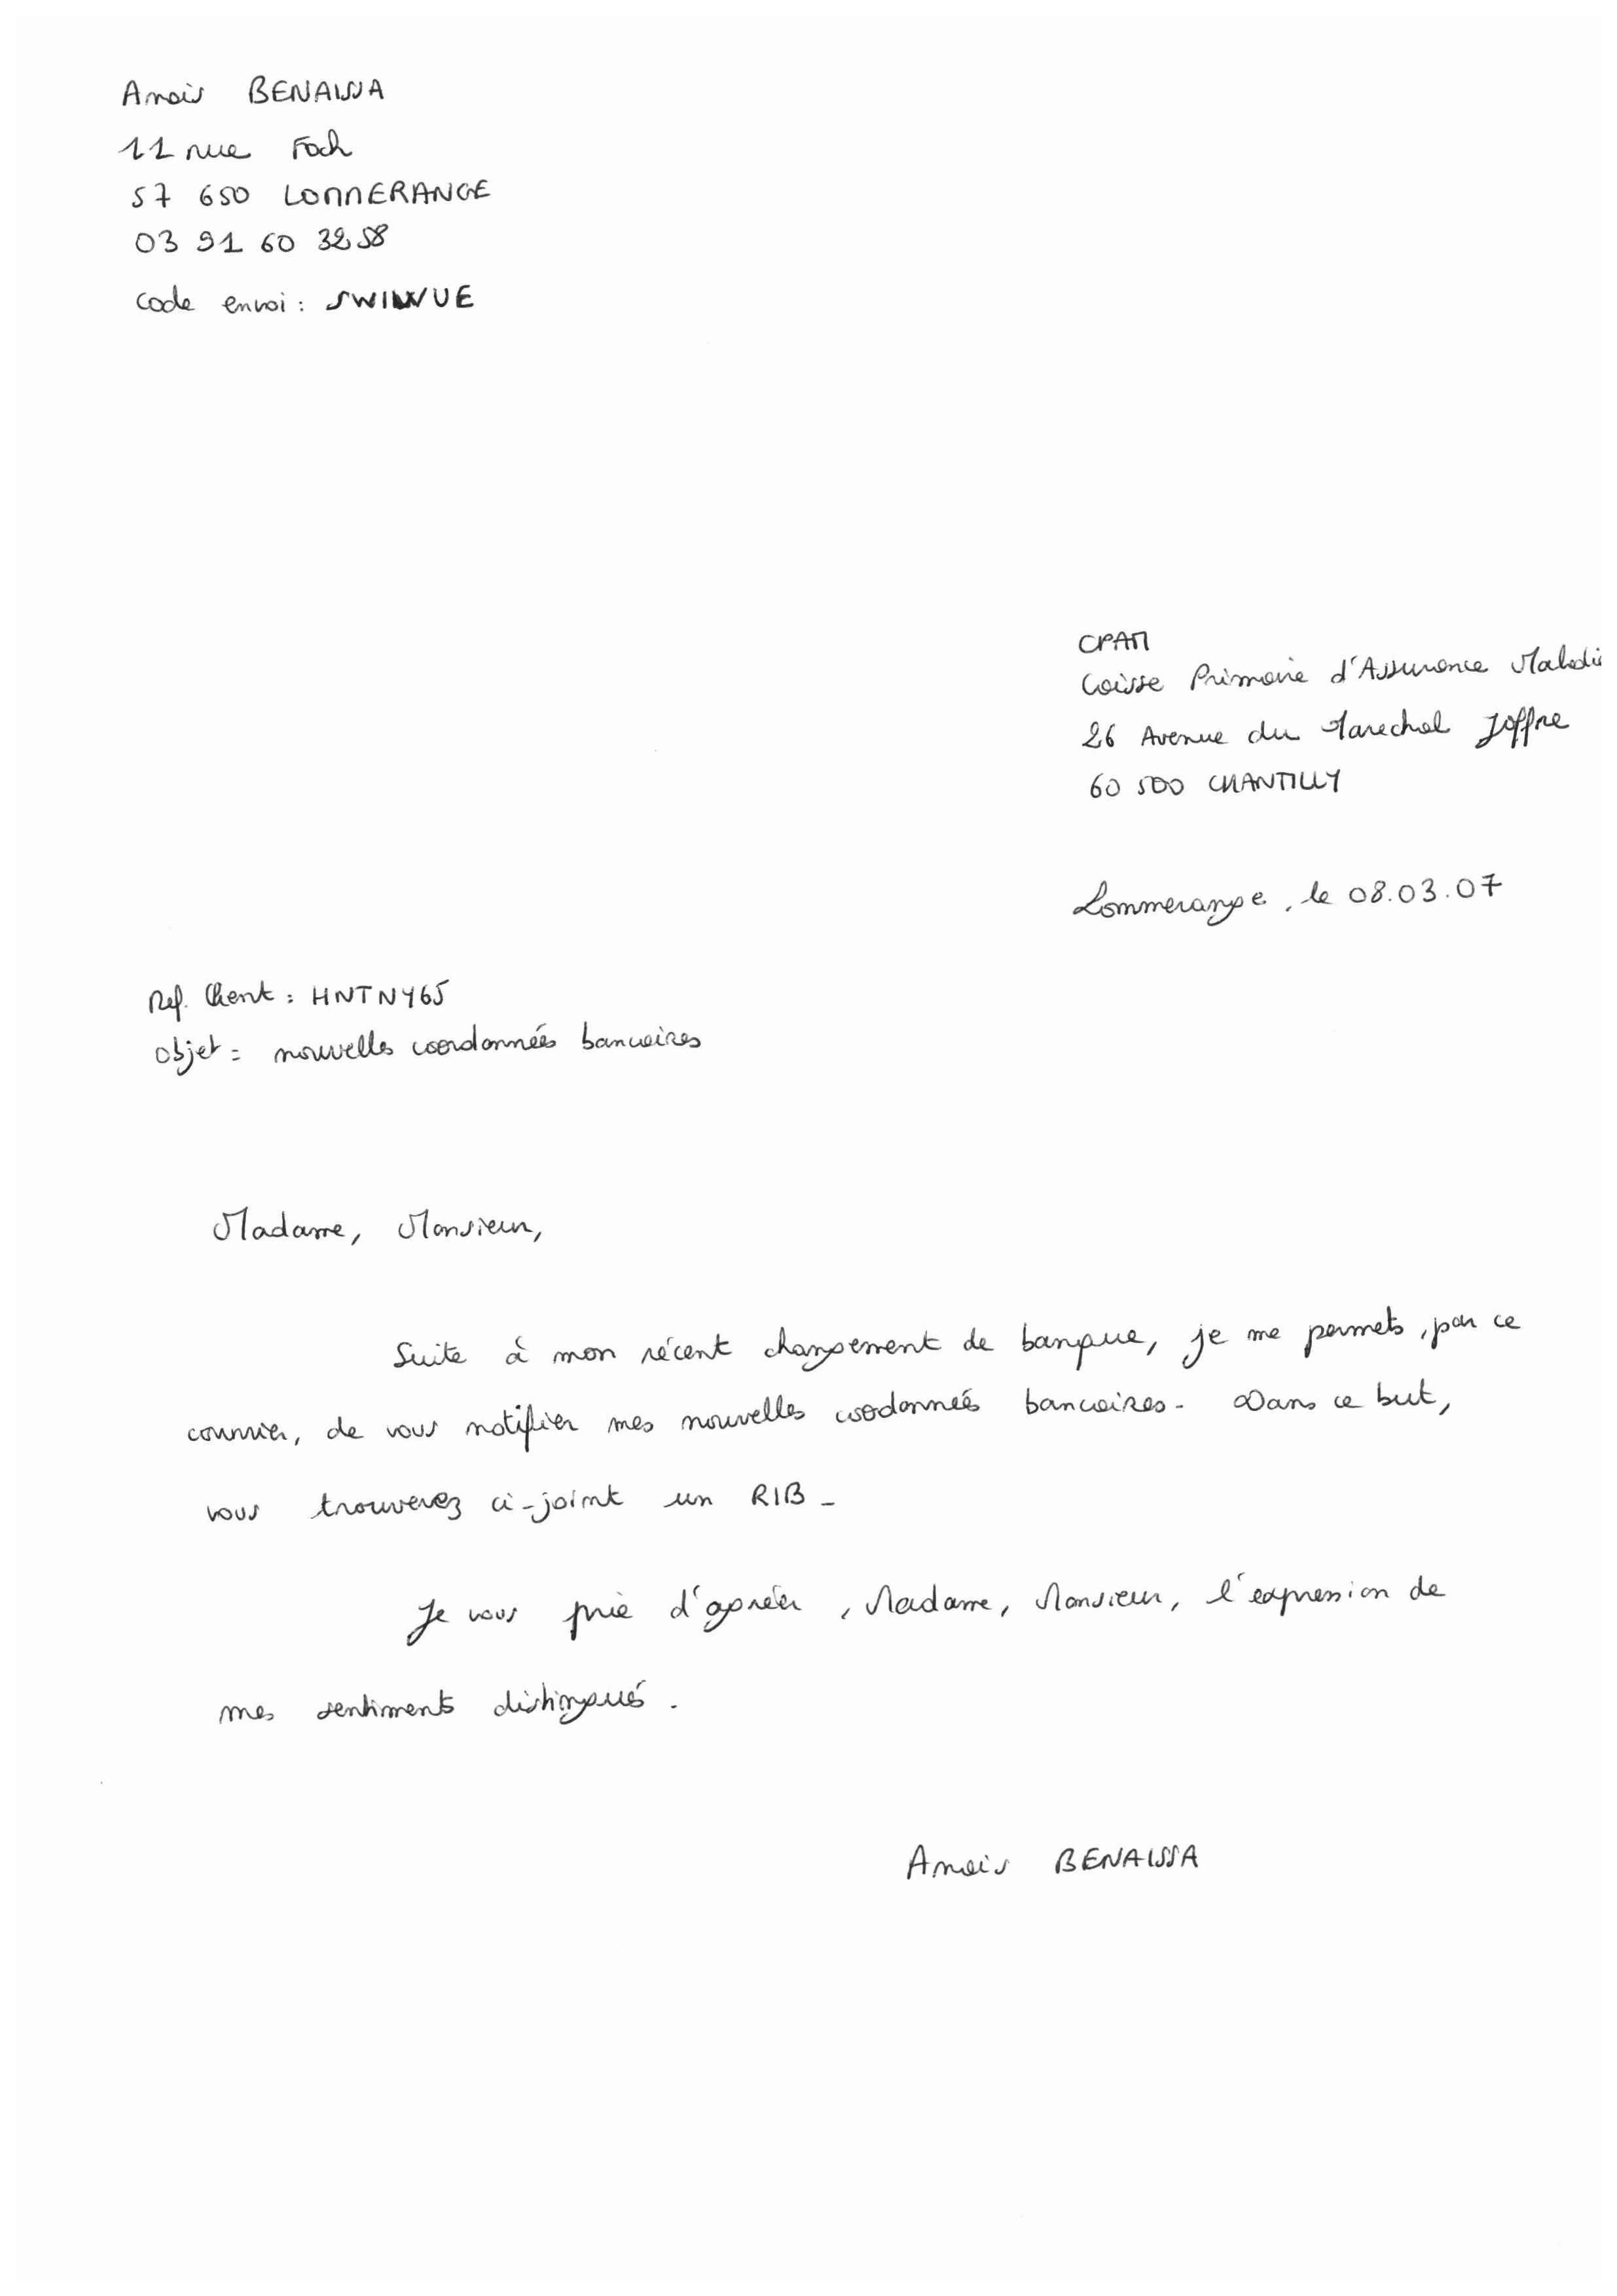 Anais BENAISSA
11 rue Foch
57 650 LOMMERANGE
03 91 60 32 58
Code envoi :
CPAM
Caisse Primaire d'Assurance Maladie
26 Avenue du Marechal Joffre
60 500 CHANTILLY
Lommerange, le 08.03.07
Ref. Client : HNTNY65
Objet : nouvelles coordonnées bancaires
Madame, Monsieur,
Suite à mon récent changement de banque, je me permets, par ce
courrier, de vous notifier mes nouvelles coordonnées bancaires. Dans ce but,
vous trouverez ci-joint un RIB.
Je vous prie d'agréer, Madame, Monsieur, l'expression de
mes sentiments distingués.
Anais BENAISSA